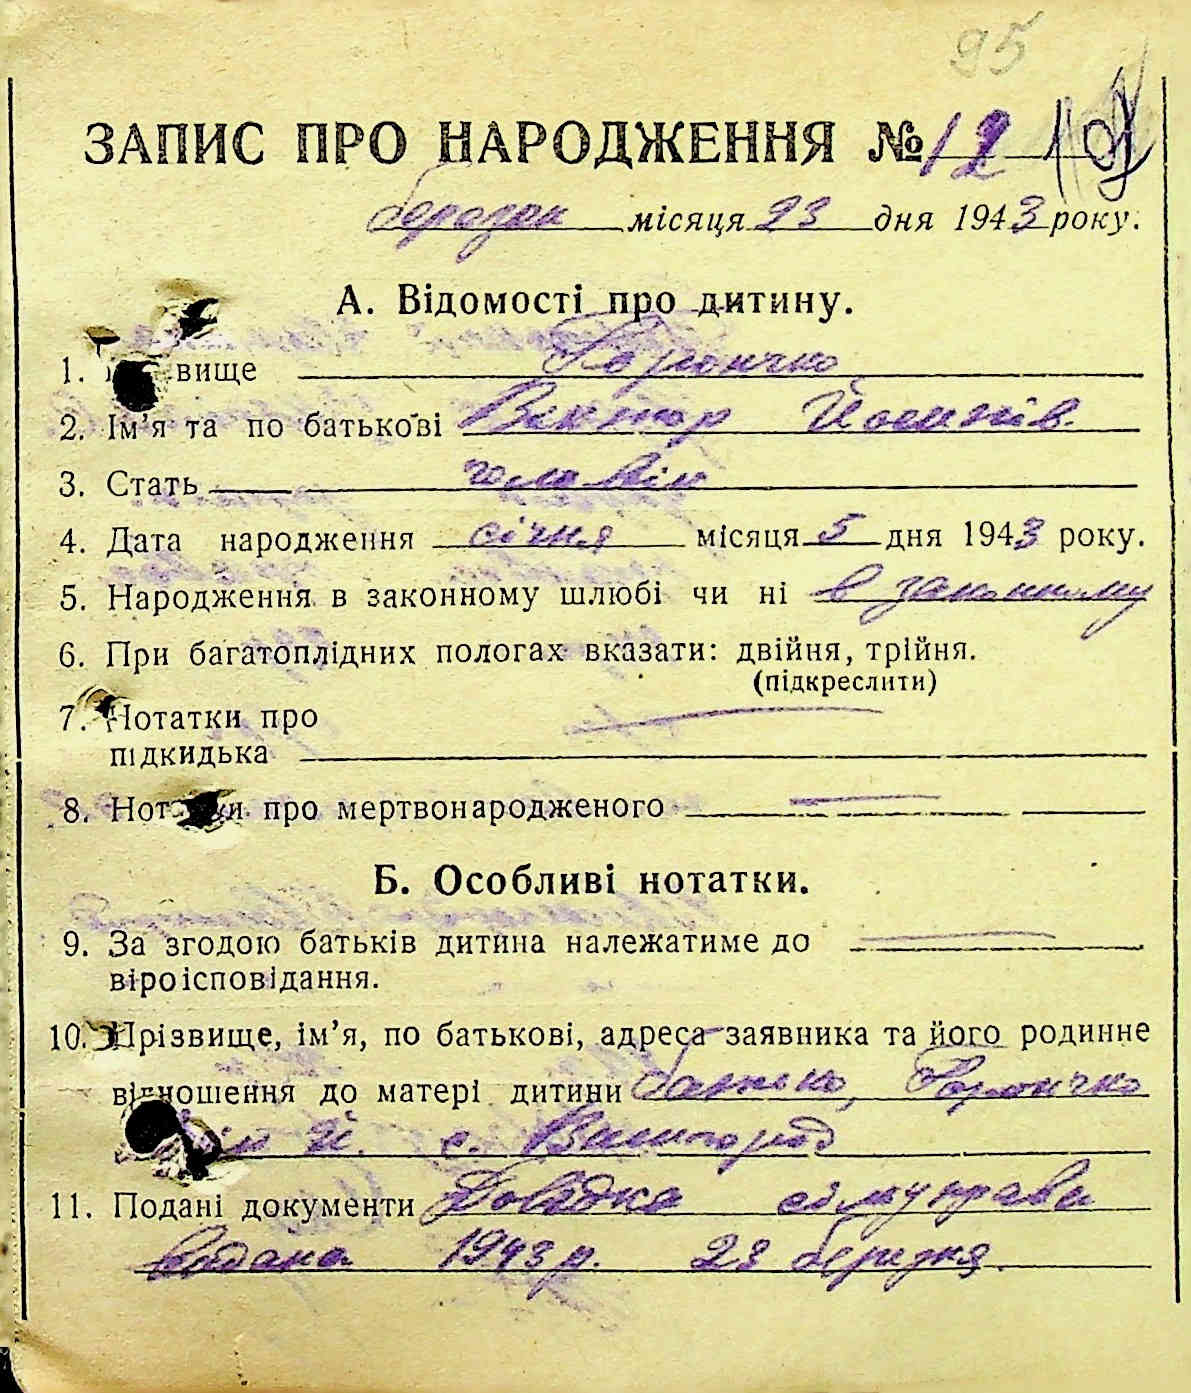 95
ЗАПИС ПРО НАРОДЖЕННЯ № 12
березня місяця 23 дня 1943 року.
А. Відомості про дитину.
1. вище Горончко
2. Ім’я та по батькові Віктор Йосипів.
3. Стать чоловіч
4. Дата народження січня місяця 5 дня 1943 року.
5. Народження в законному шлюбі чи ні в законному
6. При багатоплідних пологах вказати: двійня, трійня.
(підкреслити)
7. Нотатки про
підкидька
8. Нотатки про мертвонародженого
Б. Особливі нотатки.
9. За згодою батьків дитина належатиме до
віроісповідання.
10. Прізвище, ім’я, по батькові, адреса заявника та його родинне
відношення до матері дитини батько, Горончко
Й. с. Вишгород
11. Подані документи Довідка сільуправи
видана 1943 р. 23 березня.